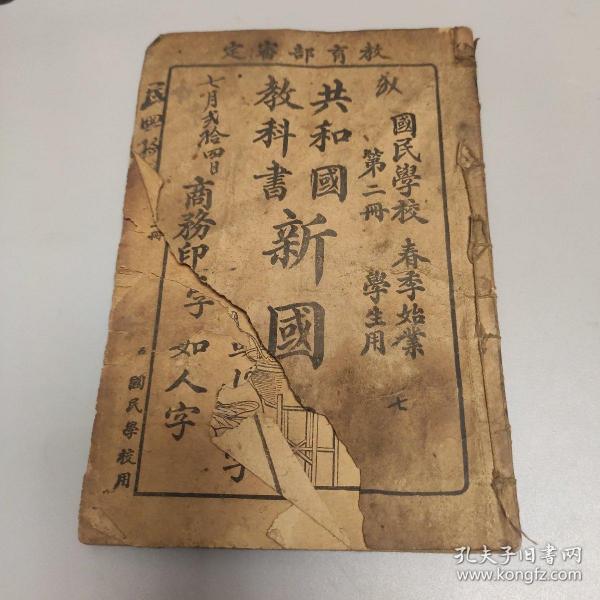 定審部育教
國民學校 春季始業
第二冊 學生用
七
共和國
教科書
新國
七月弍拾四日
商務印
字
如人字
字
冊
國民學校用
孔夫子旧书网
www.kongfz.com